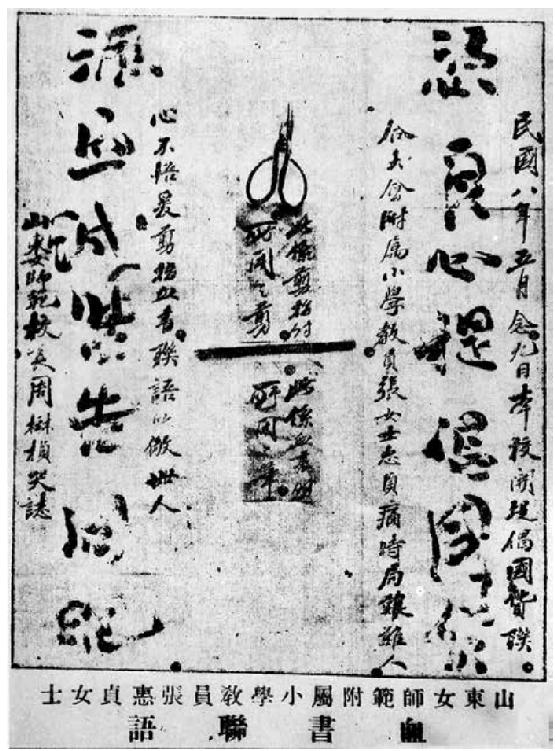 民國八年五月念九日本校開提倡國貨聯
憑良心提倡國貨
合大會附屬小學教員張女士惠貞痛時局艱難人
此係剪指時
所用之剪
此係血書時
所用之筆
心不悟爰剪指血書聯語以儆世人
血誠警告同胞
山東女師範校長周樹楨哭誌
山東女師範附屬小學教員張惠貞女士
血書聯語